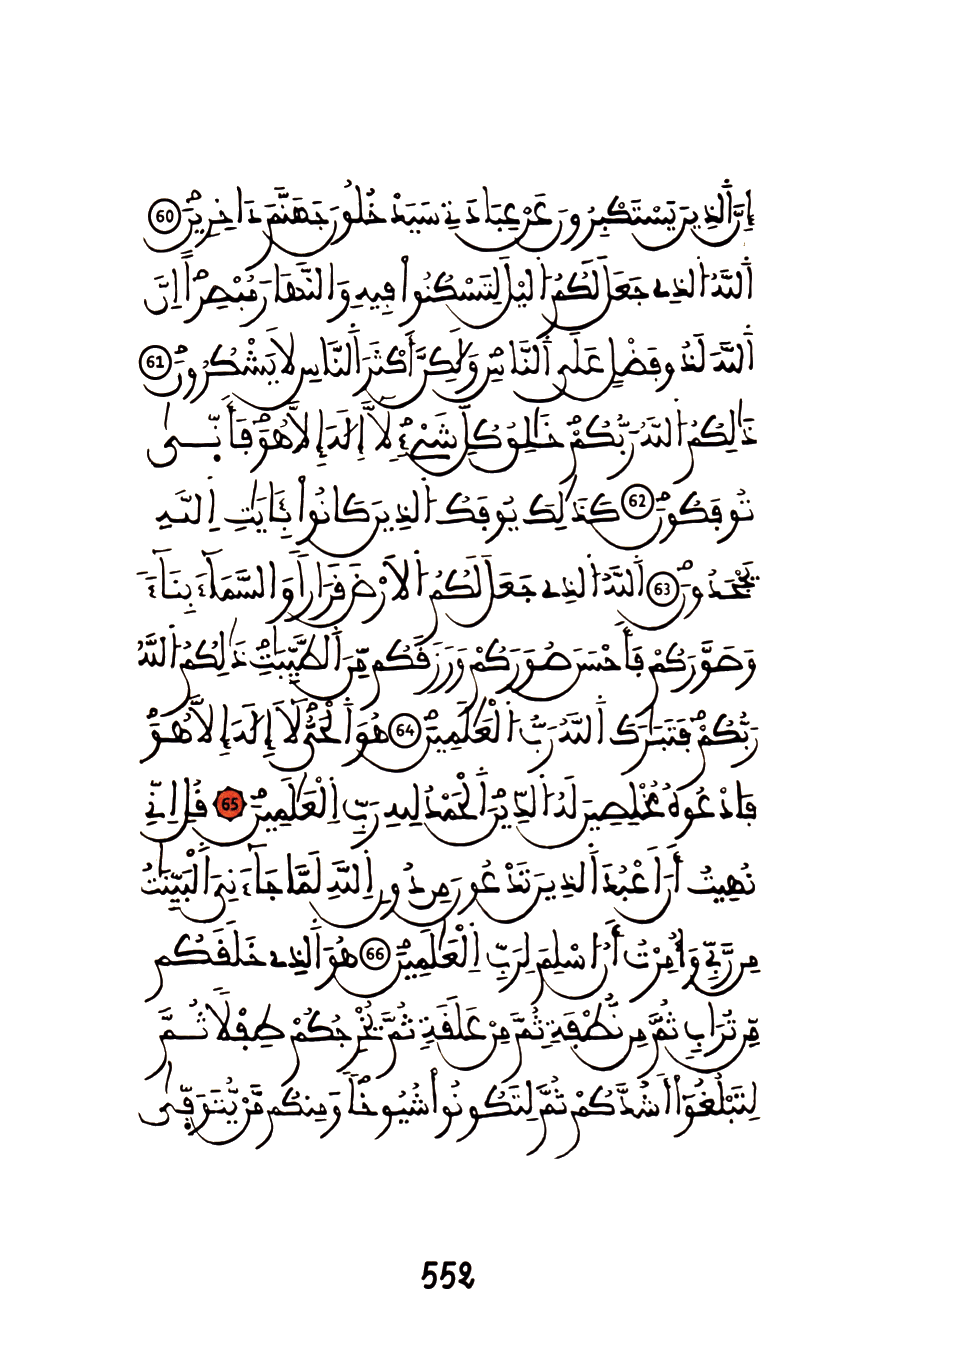 إِنَّ ٱلَّذِينَ يَسْتَكْبِرُونَ عَنْ عِبَادَتِے سَيَدْخُلُونَ جَهَنَّمَ دَاخِرِينَۖ 60
ٱللَّهُ ٱلذِے جَعَلَ لَكُمُ ٱليْلَ لِتَسْكُنُوا۟ فِيهِ وَالنَّهَارَ مُبْصِراًۖ اِنَّ
ٱللَّهَ لَذُو فَضْلٍ عَلَى ٱلنَّاسِۖ وَلَٰكِنَّ أَكْثَرَ ٱلنَّاسِ لَا يَشْكُرُونَۖ 61
ذَٰلِكُمُ ٱللَّهُ رَبُّكُمْۖ خَٰلِقُ كُلِّ شَےْءٖۖ لَّآ إِلَٰهَ إِلَّا هُوَۖ فَأَنّ۪ىٰ
تُوفَكُونَۖ 62 كَذَٰلِكَ يُوفَكُ ٱلذِينَ كَانُوا۟ بِـَٔايَٰتِ ٱللَّهِ
يَجْحَدُونَۖ 63 ٱللَّهُ ٱلذِے جَعَلَ لَكُمُ ٱلَارْضَ قَرَاراً وَالسَّمَآءَ بِنَآءٗ
وَصَوَّرَكُمْ فَأَحْسَنَ صُوَرَكُمْ وَرَزَقَكُم مِّنَ ٱلطَّيِّبَٰتِۖ ذَٰلِكُمُ ٱللَّهُ
رَبُّكُمْۖ فَتَبَٰرَكَ ٱللَّهُ رَبُّ ٱلْعَٰلَمِينَۖ 64 هُوَ ٱلْحَىُّ لَآ إِلَٰهَ إِلَّا هُوَۖ
فَادْعُوهُ مُخْلِصِينَ لَهُ ٱلدِّينَۖ ٱلْحَمْدُ لِلهِ رَبِّ ٱلْعَٰلَمِينَۖ 65 قُلِ اِنِّے
نُهِيتُ أَنَ اَعْبُدَ ٱلذِينَ تَدْعُونَ مِن دُونِ ٱللَّهِ لَمَّا جَآءَنِيَ ٱلْبَيِّنَٰتُ
مِن رَّبِّے وَأُمِرْتُ أَنُ اسْلِمَ لِرَبِّ ٱلْعَٰلَمِينَۖ 66 هُوَ ٱلذِے خَلَقَكُم
مِّن تُرَابٖ ثُمَّ مِن نُّطْفَةٖ ثُمَّ مِنْ عَلَقَةٖ ثُمَّ يُخْرِجُكُمْ طِفْلاً ثُمَّ
لِتَبْلُغُوٓا۟ أَشُدَّكُمْ ثُمَّ لِتَكُونُوا۟ شُيُوخاًۖ وَمِنكُم مَّنْ يُّتَوَفّ۪ىٰ
552